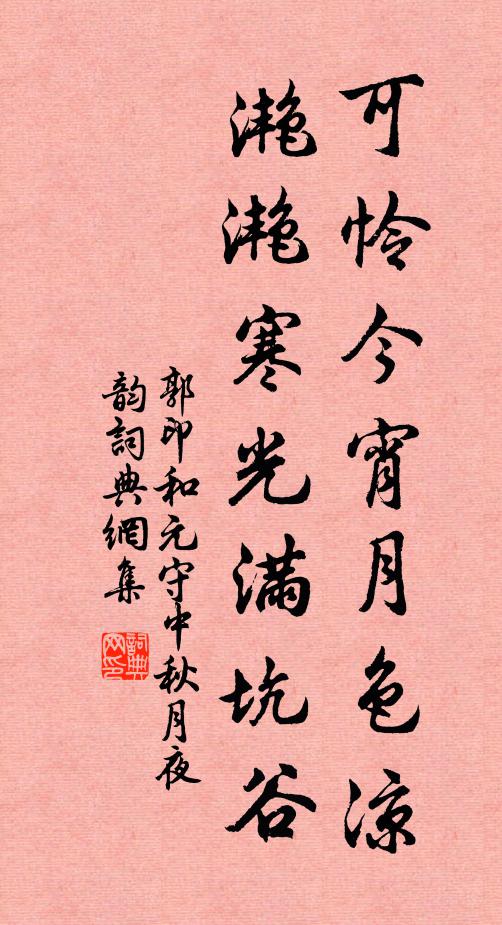 可怜今宵月色凉
滟滟寒光满坑谷
郭印和元守中秋月夜
韵词典网集
詞典
网印